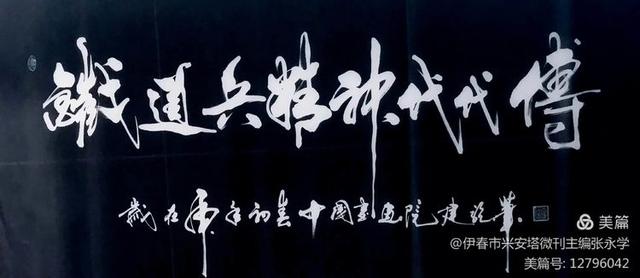 鐵道兵精神代代傳
歲在虎年初春中國書画院建筆
美篇
@伊春市米安塔微刊主编张永学
美篇号: 12796042